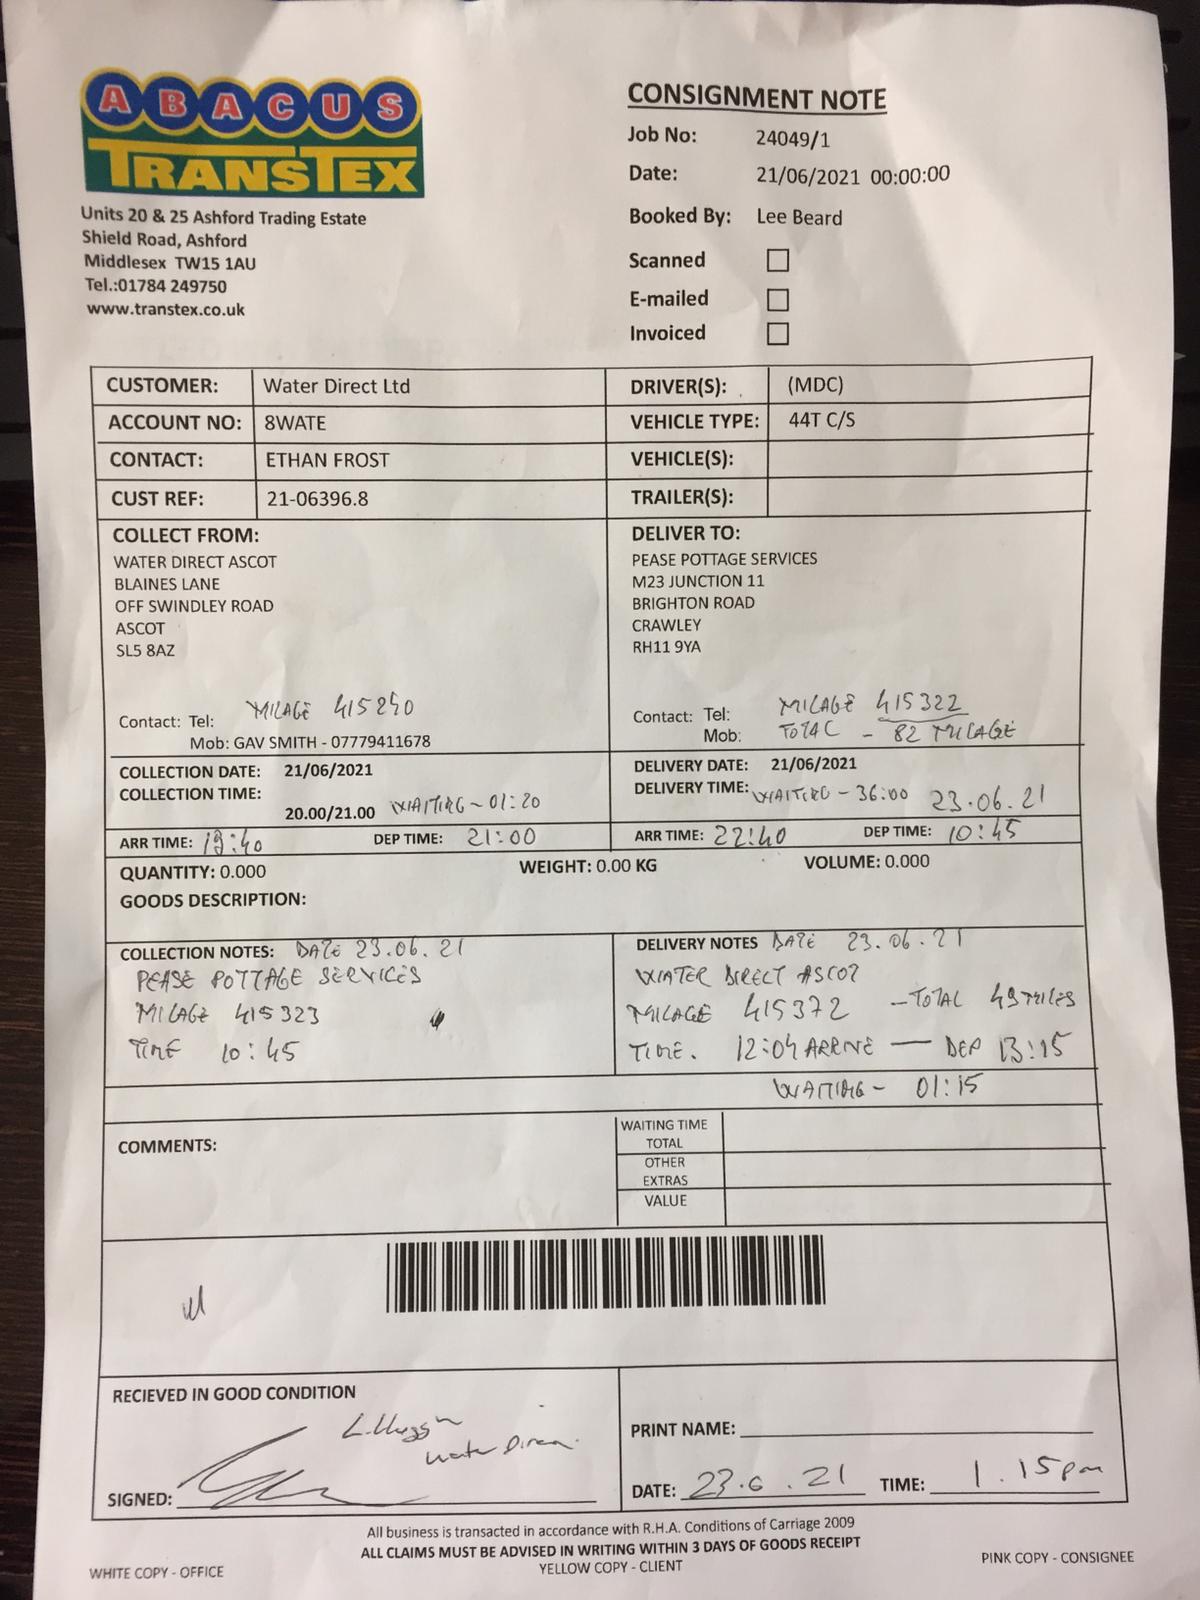 ABACUS
TRANSTEX
Units 20 & 25 Ashford Trading Estate
Shield Road, Ashford
Middlesex TW15 1AU
Tel.:01784 249750
www.transtex.co.uk
CONSIGNMENT NOTE
Job No: 24049/1
Date: 21/06/2021 00:00:00
Booked By: Lee Beard
Scanned
E-mailed
Invoiced
CUSTOMER: Water Direct Ltd DRIVER(S): (MDC)
ACCOUNT NO: 8WATE VEHICLE TYPE: 44T C/S
CONTACT: ETHAN FROST VEHICLE(S):
CUST REF: 21-06396.8 TRAILER(S):
COLLECT FROM:
WATER DIRECT ASCOT
BLAINES LANE
OFF SWINDLEY ROAD
ASCOT
SL5 8AZ
Contact: Tel: MILAGE 415240
Mob: GAV SMITH - 07779411678
DELIVER TO:
PEASE POTTAGE SERVICES
M23 JUNCTION 11
BRIGHTON ROAD
CRAWLEY
RH11 9YA
Contact: Tel: MILAGE 415322
Mob: TOTAL - 82 MILAGE
COLLECTION DATE: 21/06/2021
COLLECTION TIME:
20.00/21.00 WAITING - 01:20
ARR TIME: 19:40 DEP TIME: 21:00
DELIVERY DATE: 21/06/2021
DELIVERY TIME: WAITING - 36:00 23.06.21
ARR TIME: 22:40 DEP TIME: 10:45
QUANTITY: 0.000 WEIGHT: 0.00 KG VOLUME: 0.000
GOODS DESCRIPTION:
COLLECTION NOTES: DATE 23.06.21
PEASE POTTAGE SERVICES
MILAGE 415323
TIME 10:45
DELIVERY NOTES DATE 23.06.21
WATER DIRECT ASCOT
MILAGE 415372 - TOTAL 49 MILES
TIME. 12:04 ARRIVE — DEP 13:15
WAITING - 01:15
COMMENTS:
WAITING TIME
TOTAL
OTHER
EXTRAS
VALUE
RECIEVED IN GOOD CONDITION
Water
SIGNED:
PRINT NAME:
DATE: 23.6.21 TIME: 1.15pm
All business is transacted in accordance with R.H.A. Conditions of Carriage 2009
ALL CLAIMS MUST BE ADVISED IN WRITING WITHIN 3 DAYS OF GOODS RECEIPT
WHITE COPY - OFFICE YELLOW COPY - CLIENT PINK COPY - CONSIGNEE